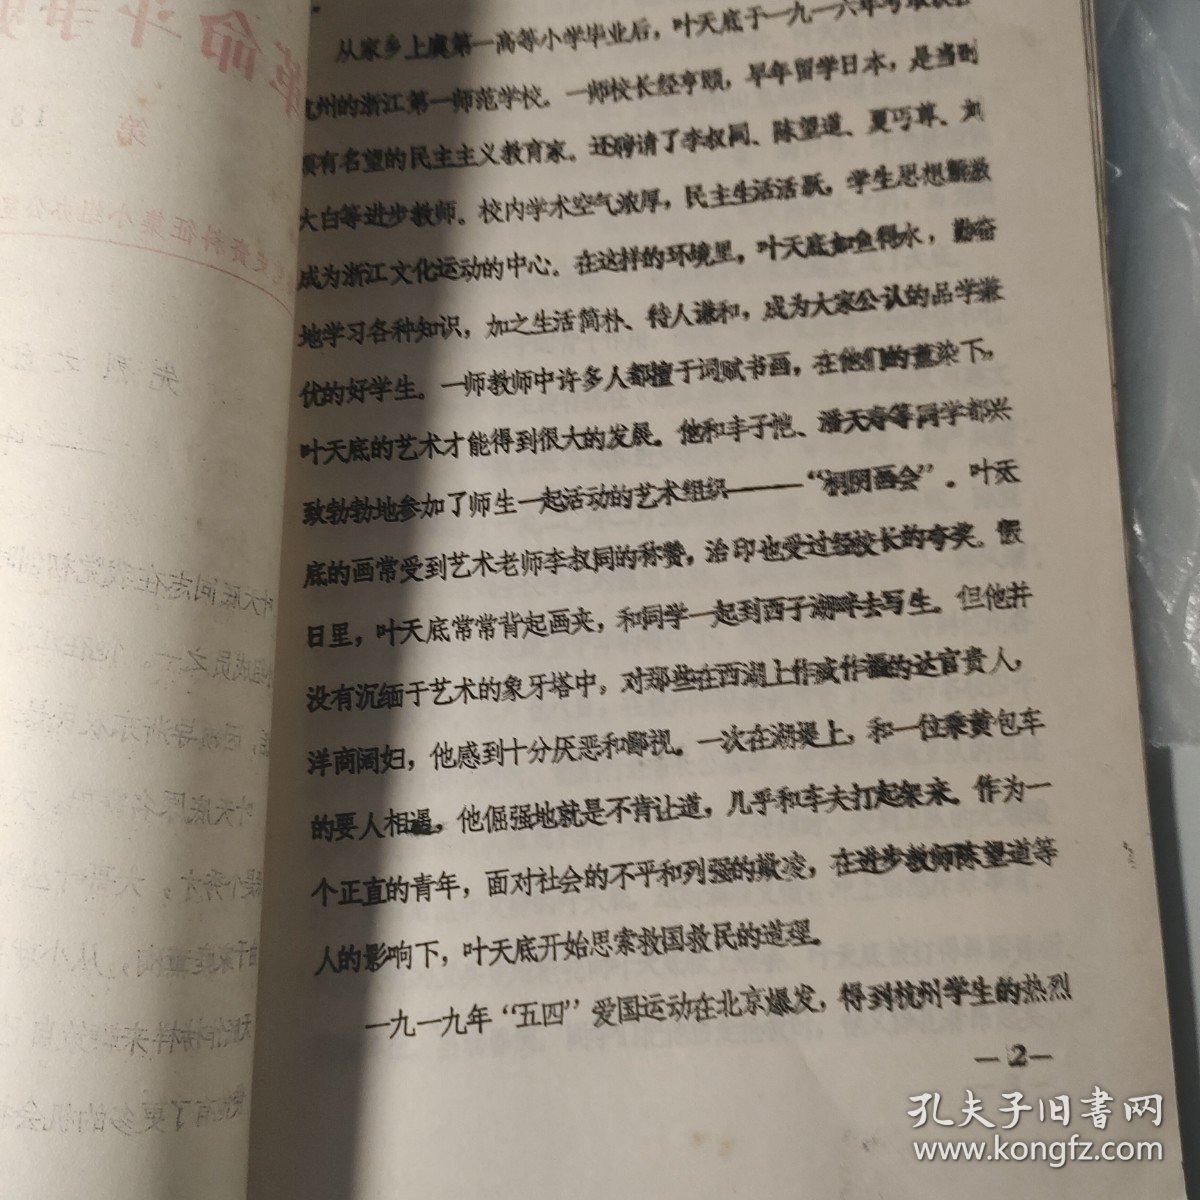 从家乡上虞第一高等小学毕业后，叶天底于一九一六年考取
杭州的浙江第一师范学校。一师校长经亨颐，早年留学日本，是当时
颇有名望的民主主义教育家。还聘请了李叔同、陈望道、夏丏尊、刘
大白等进步教师。校内学术空气浓厚，民主生活活跃。学生思想解放
成为浙江文化运动的中心。在这样的环境里，叶天底如鱼得水，勤奋
地学习各种知识，加之生活简朴、待人谦和，成为大家公认的品学兼
优的好学生。一师教师中许多人都擅于词赋书画，在他们的薰染下，
叶天底的艺术才能得到很大的发展。他和丰子恺、潘天寿等同学都兴
致勃勃地参加了师生一起活动的艺术组织——“桐阴画会”。叶天
底的画常受到艺术老师李叔同的称赞，治印也受过经校长的夸奖。假
日里，叶天底常常背起画夹，和同学一起到西子湖畔去写生。但他并
没有沉缅于艺术的象牙塔中，对那些在西湖上作威作福的达官贵人，
洋商阔妇，他感到十分厌恶和鄙视。一次在湖堤上，和一位乘黄包车
的要人相遇，他倔强地就是不肯让道，几乎和车夫打起架来。作为一
个正直的青年，面对社会的不平和列强的欺凌，在进步教师陈望道等
人的影响下，叶天底开始思索救国救民的道理。
一九一九年“五四”爱国运动在北京爆发，得到杭州学生的热烈
—2—
孔夫子旧书网
www.kongfz.com